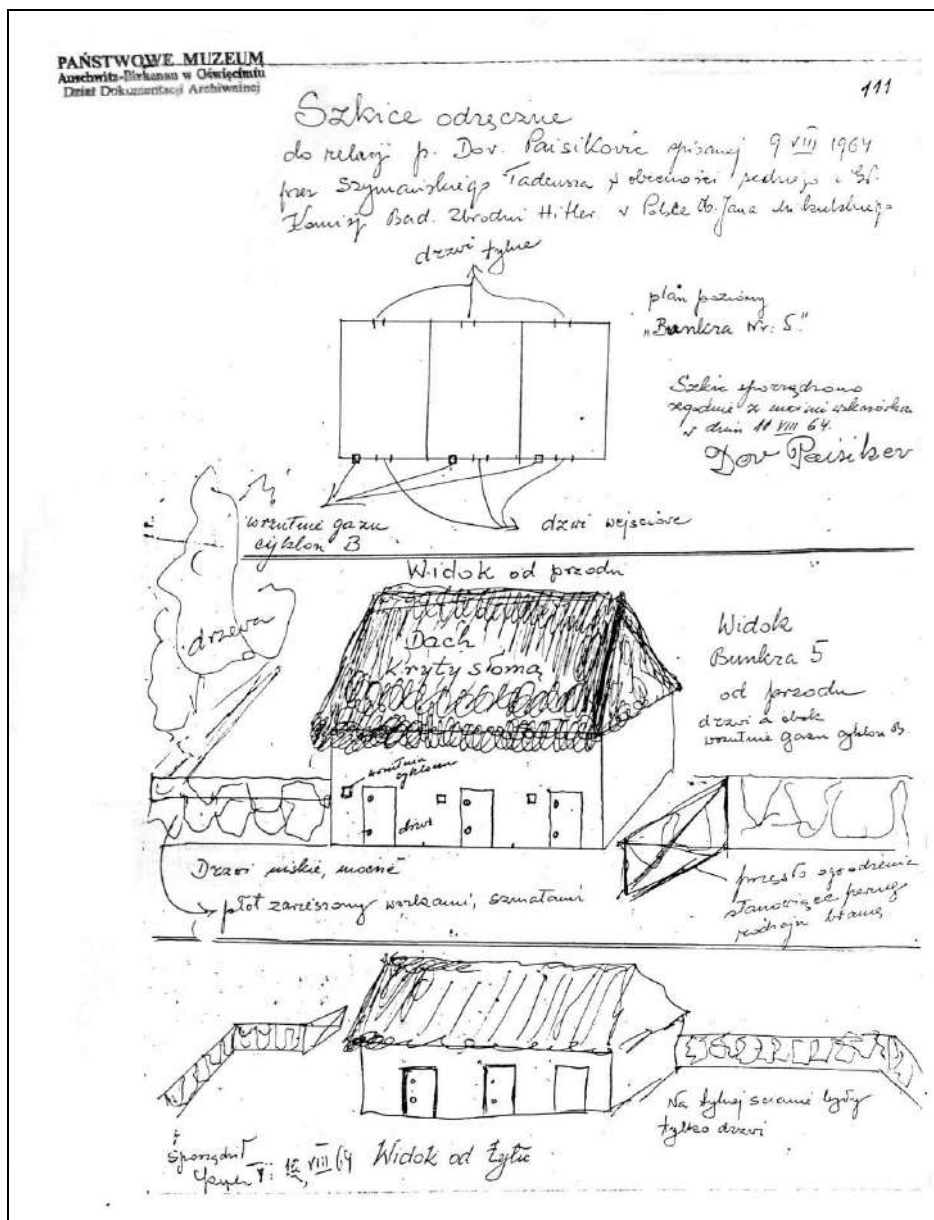 PAŃSTWOWE MUZEUM
Auschwitz-Birkenau w Oświęcimiu
Dział Dokumentacji Archiwalnej
111
Szkice odręczne
do relacji p. Dov. Paisikovic spisanej 9 VIII 1964
przez Szymańskiego Tadeusza w obecności sędziego
Komisji Bad. Zbrodni Hitler. w Polsce Ob. Jana
drzwi tylne
plan poziomy
"Bunkra Nr: 5."
Szkic sporządzono
zgodnie z moimi wskazówkami
w dniu 11 VIII 64.
Dov Paisikov
wrzutnie gazu
cyklon B
drzwi wejściowe
Widok od przodu
drzewa
Dach
Kryty słomą
Widok
Bunkra 5
od przodu
drzwi a obok
wrzutnie gazu cyklon B.
wrzutnia
cyklonu
drzwi
Drzwi niskie, mocne
płot zawieszony workami, szmatami
przęsło ogrodzenia
stanowiące pewnego
rodzaju bramę
Na tylnej ścianie były
tylko drzwi
Sporządził
VIII 64
Widok od tyłu